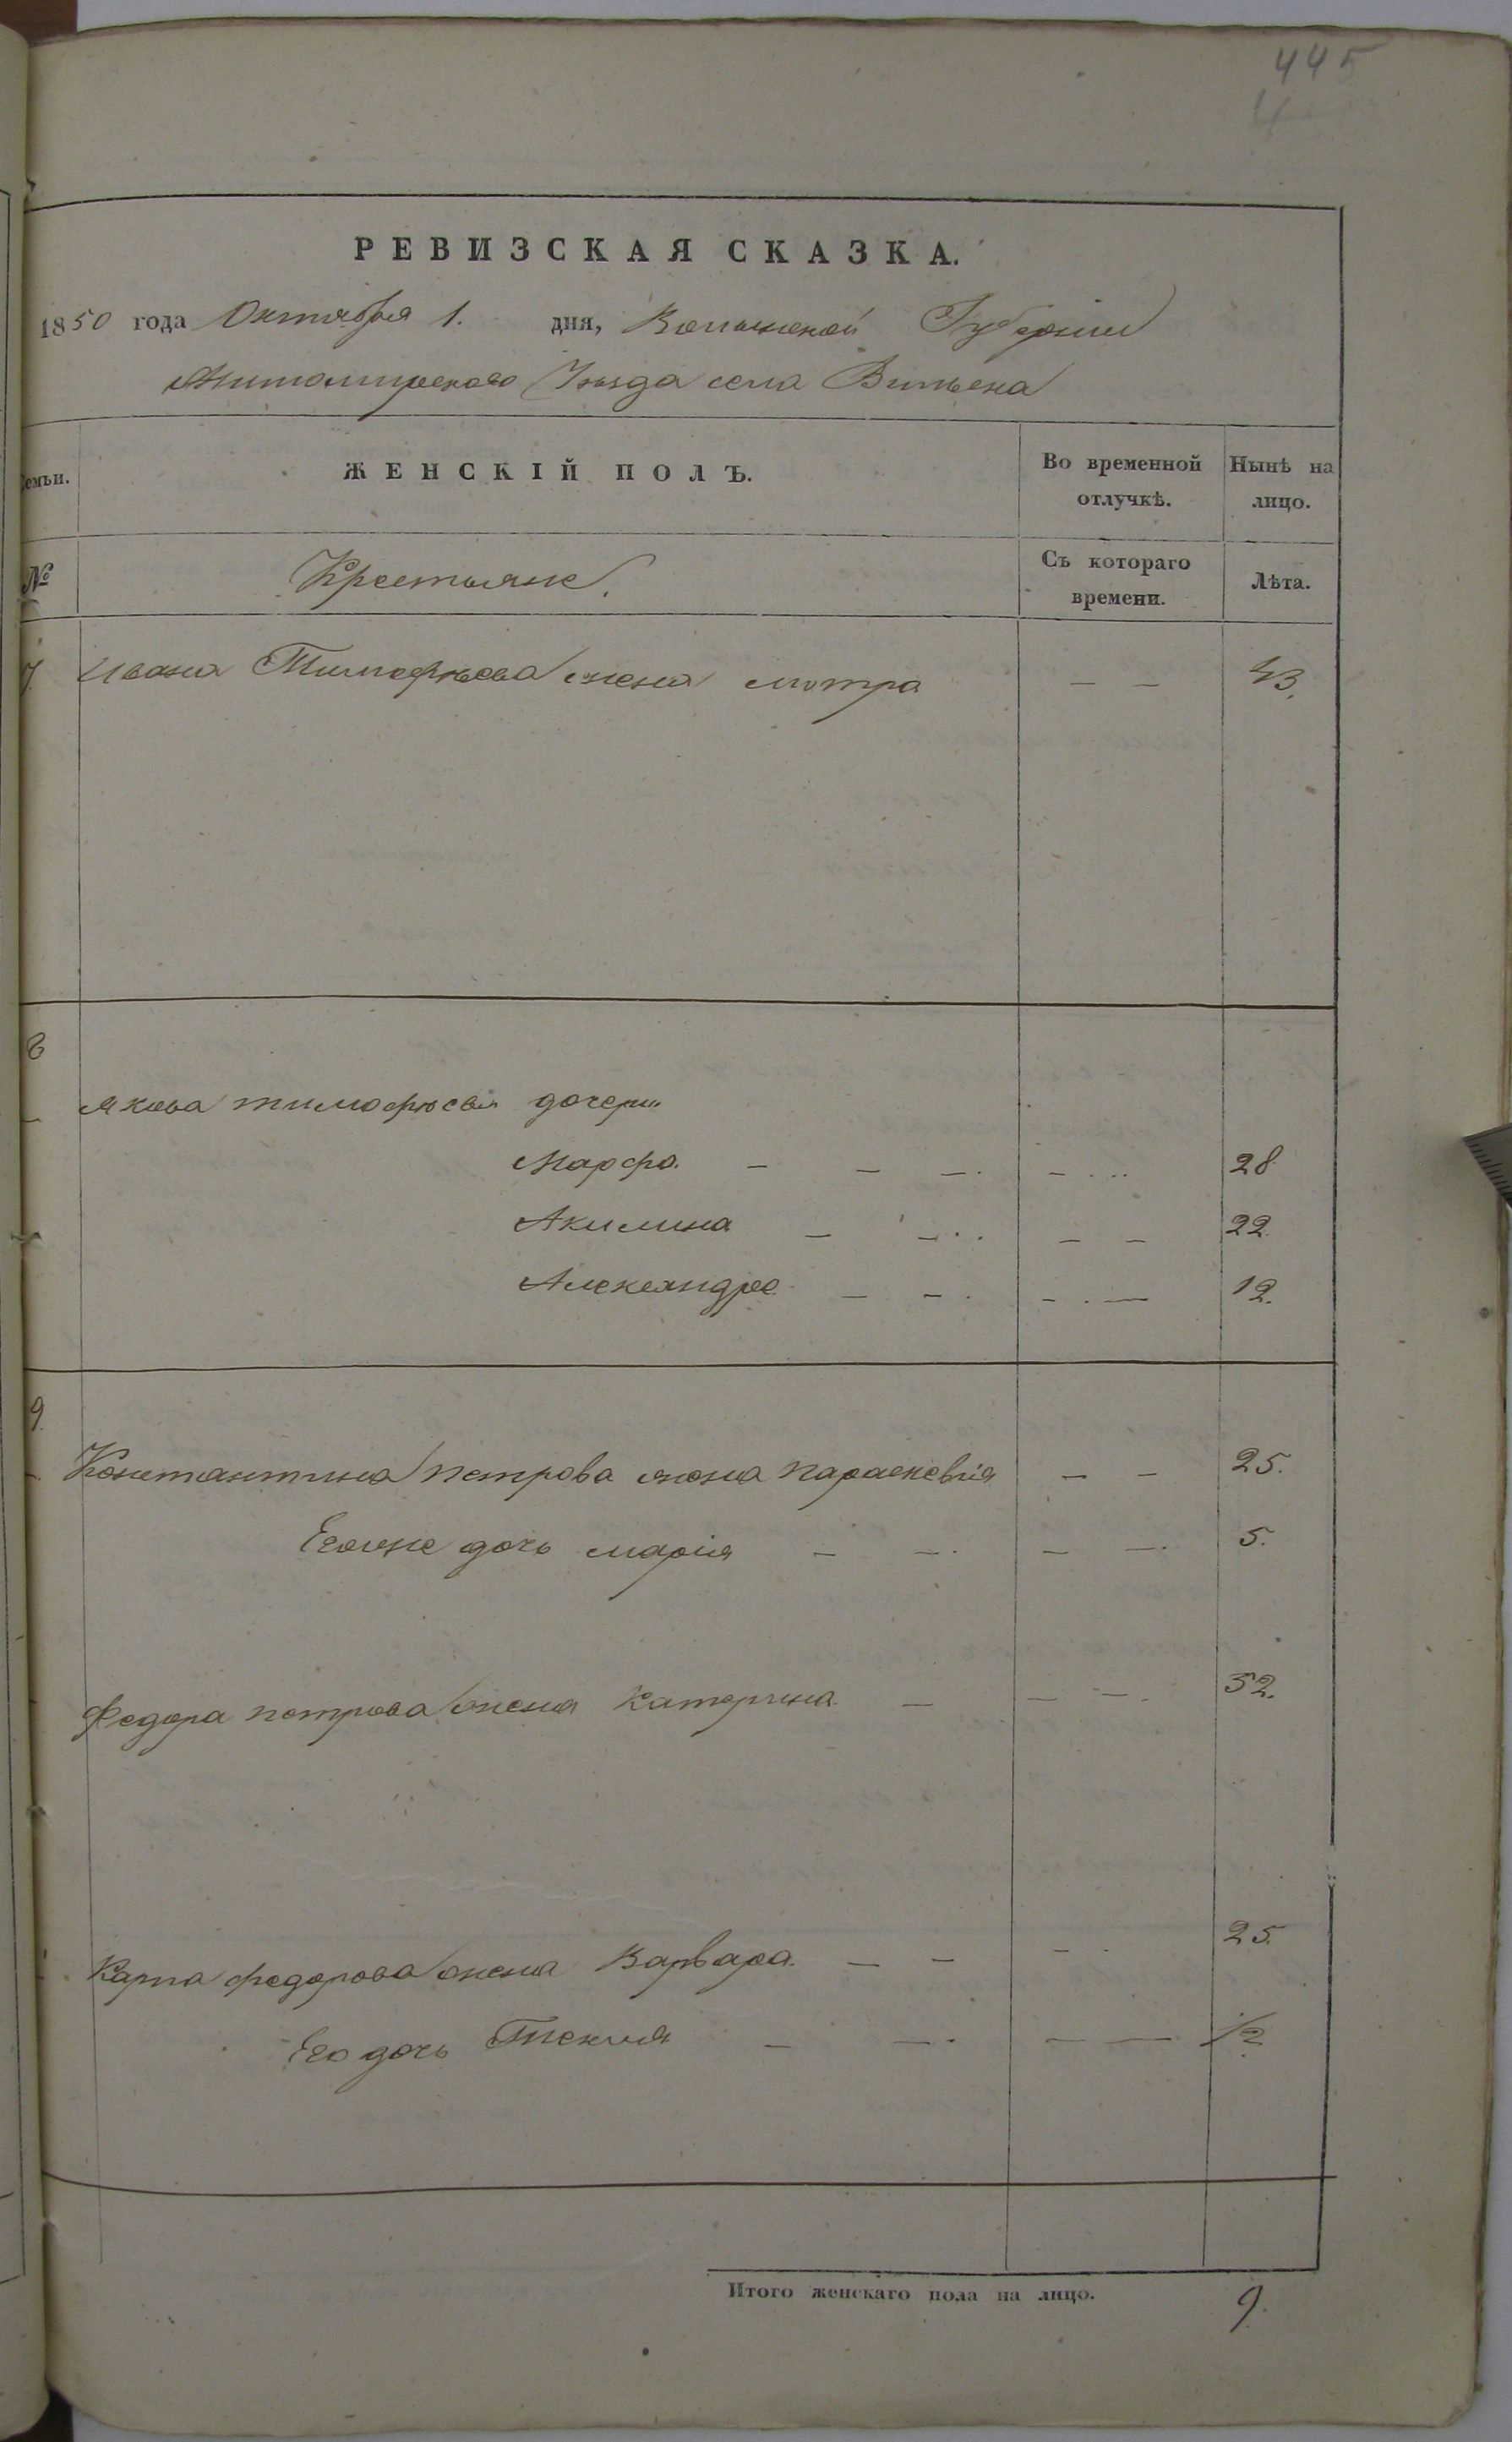 445
РЕВИЗСКАЯ СКАЗКА.
1850 года Октября 1. дня, Волынской Губернии
Житомирскаго Уезда села Вильска
емьи. ЖЕНСКІЙ ПОЛЪ. Во временной отлучкѣ. Нынѣ на лицо.
№ Крестьяне. Съ котораго времени. Лѣта.
7 Ивана Тимофѣева жена мотра — — 43.
8
Якова тимофѣева дочери
Марфа. — — — . — . .. 28
Акилина — — . . — — 22
Александра — — . — . — 12.
9.
Константина петрова жена параскевія — — 25.
Егоже дочь марія — — . — — . 5.
Федора петрова жена Катерина — — — . 52.
Карпа федорова жена Варвара. — — — . 25.
Его дочь Текля — — . — — 1/2
Итого женскаго пола на лицо. 9.